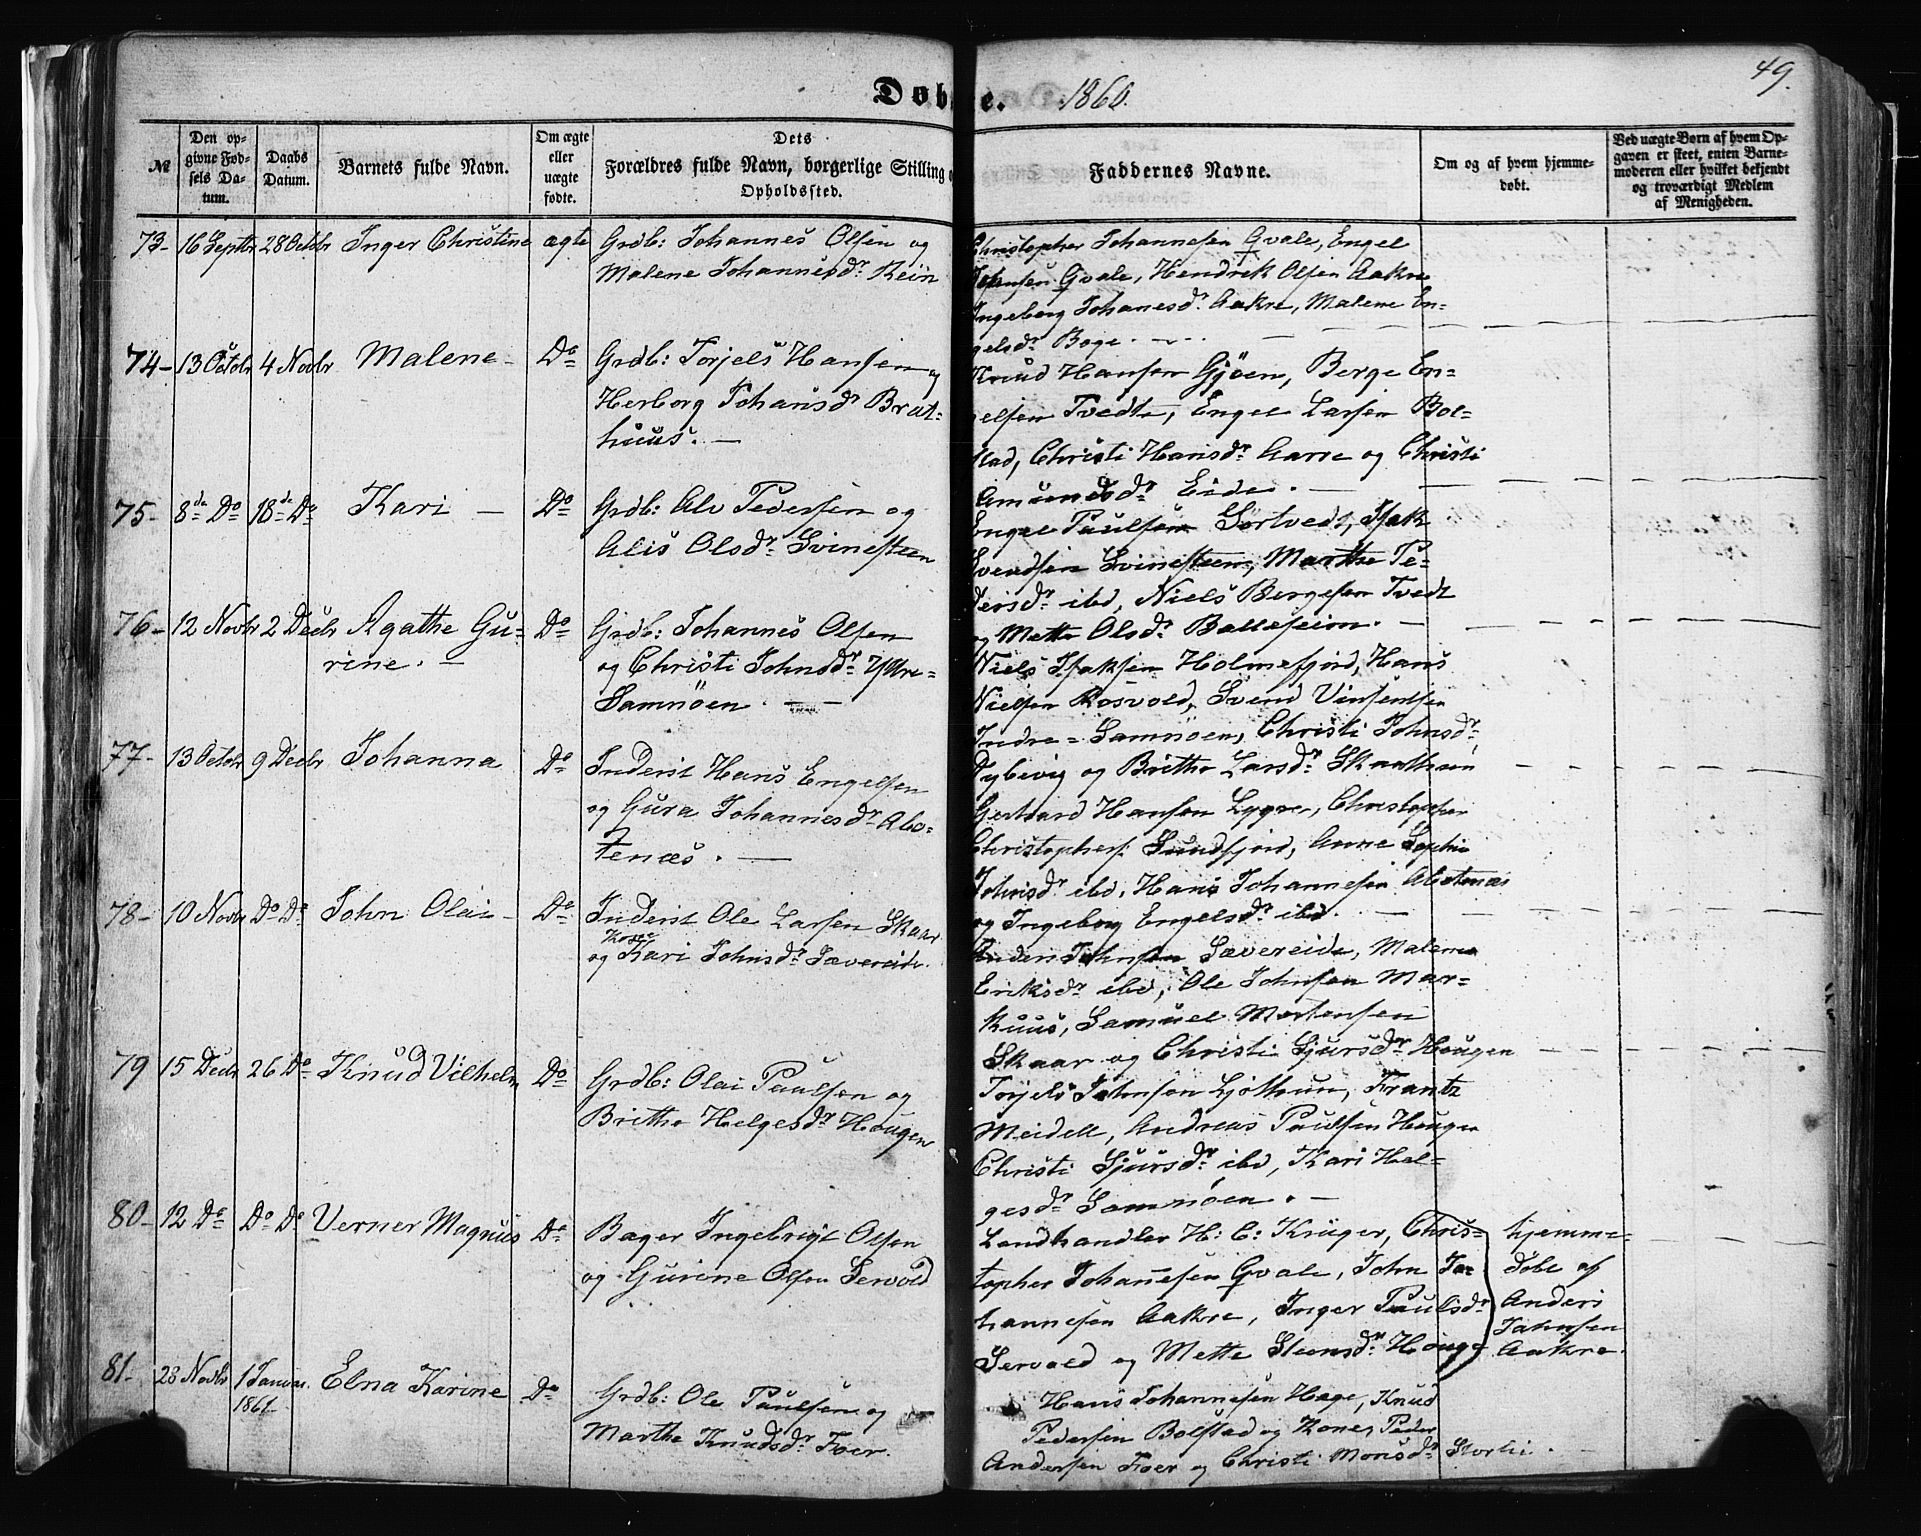 Døb e. 1860. 49.
№
Den opgivne Fødsels Datum.
Daabs Datum.
Barnets fulde Navn.
Om ægte eller uægte fødte.
Dets Forældres fulde Navn, borgerlige Stilling o
Opholdssted.
Faddernes Navne.
Om og af hvem hjemmedøbt.
Ved uægte Børn af hvem Opgaven er skeet, enten Barnemoderen eller hvilket bekjendt og troværdigt Medlem af Menigheden.
73- 16 Septbr 28 Octbr Inger Christine ægte Grdb: Johannes Olsen og
Malene Johannesdr. Rein
Christopher Johannesen Qvale, Engel
Johnsen Qvale, Hendrik Olsen Aakre
Ingeborg Johanesdr. Aakre, Malene En-
gelsdr. Boge.
74- 13 Octobr 4 Novbr Malene - Do Grdb: Torjels Hansen og
Herborg Johansdr Brat-
huus. -
Knud Hansen Gjöen, Berge En-
gelsen Tvedte, Engel Larsen Bol-
stad, Christi Hansdr. Aarre og Christi
Amundsdr. Eide. -
75- 8de Do 18de Do Kari - Do Grdb: Alv Pedersen og
Alis Olsdr. Svinesteen
Engel Paulsen Sørtvedt, Isak
Svendsen Svinesteen, Marthe Pe-
dersdr. ibd, Niels Bergesen Tvedt
og Mette Olsdr. Balleseim. -
76- 12 Novbr 2 Decbr Agathe Gu-
rine. - Do Grdb: Johannes Olsen
og Christi Johnsdr. Yttre=
Samnöen. -
Niels Isaksen Holmefjord, Hans
Nielsen Rosvold, Svend Vinsentsen
Indre= Samnöen, Christi Johnsdr,
Dybevig og Brithe Larsdr. Skaathun
77- 13 Octobr 9 Decbr Johanna Do Inderst Hans Engelsen
og Gura Johannesdr. Alv-
tenæs. -
Gerhard Hansen Lygre, Christopher
Christophers: Sundfjord, Anne Sophie
Johnsdr. ibd, Hans Johannesen
og Ingeborg Engelsdr. ibd. -
78- 10 Novbr Do Do John Olai - Do Inderst Ole Larsen Skaar
og Kone Kari Johnsdr. Sævereide.
Anders Johnsen Sævereide, Malene
Eriksdr. ibd, Ole Johnsen Mar-
kuus, Samuel Mortensen
Skaar og Christi Sjursdr. Hougen
79 15 Decbr 26 Do Knud Vilhelm Do Grdb: Olai Paulsen og
Brithe Helgesdr. Hougen
Torjels Johnsen Ljothun, Frantz
Meidell, Andreas Paulsen Hougen
Christi Sjursdr. ibd, Kari Hel-
gesdr. Samnöen. -
80- 12 Do Do Do Verner Magnus Do Bager Ingebrigt Olsen
og Gurine Olsen Servold
Landhandler H: C: Krüger, Chris-
topher Johannesen Qvale, John Jo-
hannesen Aakre, Inger Paulsdr
Servold og Mette Steensdr. Houge
hjemme-
døbt af
Anders
Johnsen
Aakre.
81- 28 Novbr 1 Januar.
1861. Elna Karine Do Grdb: Ole Paulsen og
Marthe Knudsdr. Foer.
Hans Johannesen Hage, Knud
Pedersen Bolstad og Kone, Peder
Andersen Foer og Christi Monsdr. Storlie. -